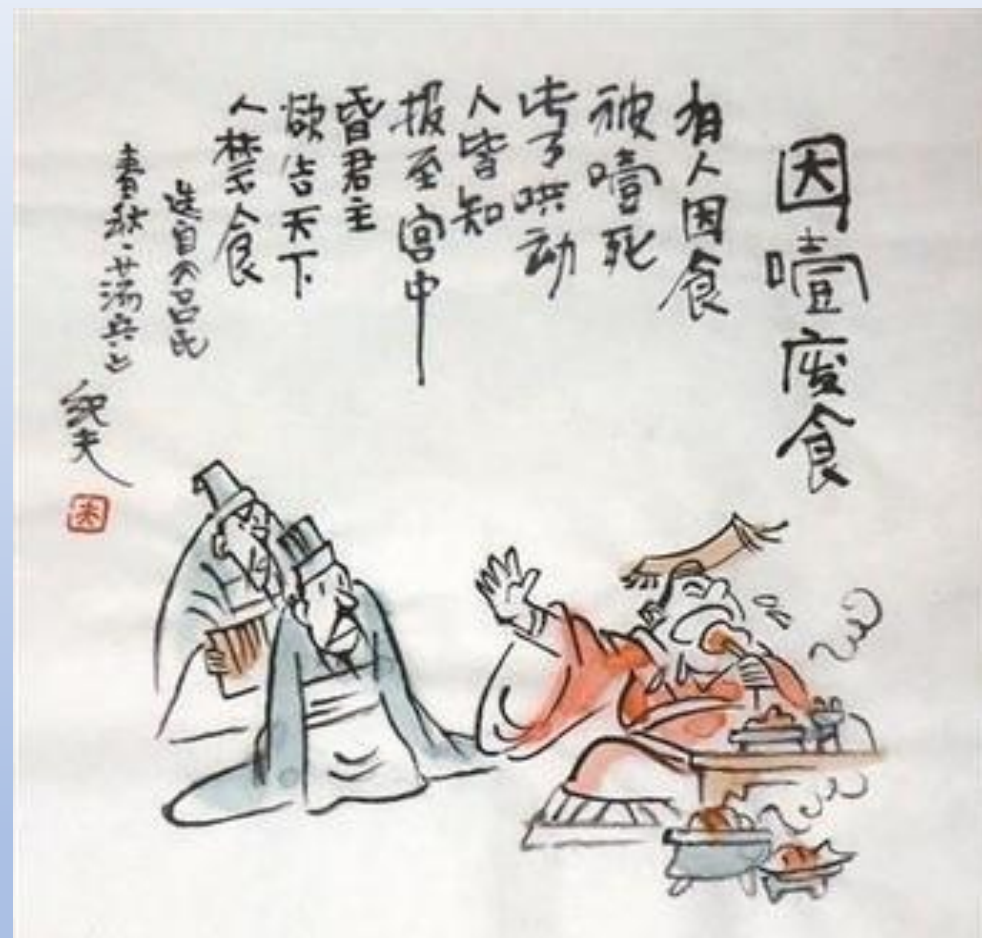 因噎废食
有人因食
被噎死
此事哄动
人皆知
报至宫中
昏君主
欲告天下
人禁食
选自《吕氏
春秋·荡兵》
纪夫